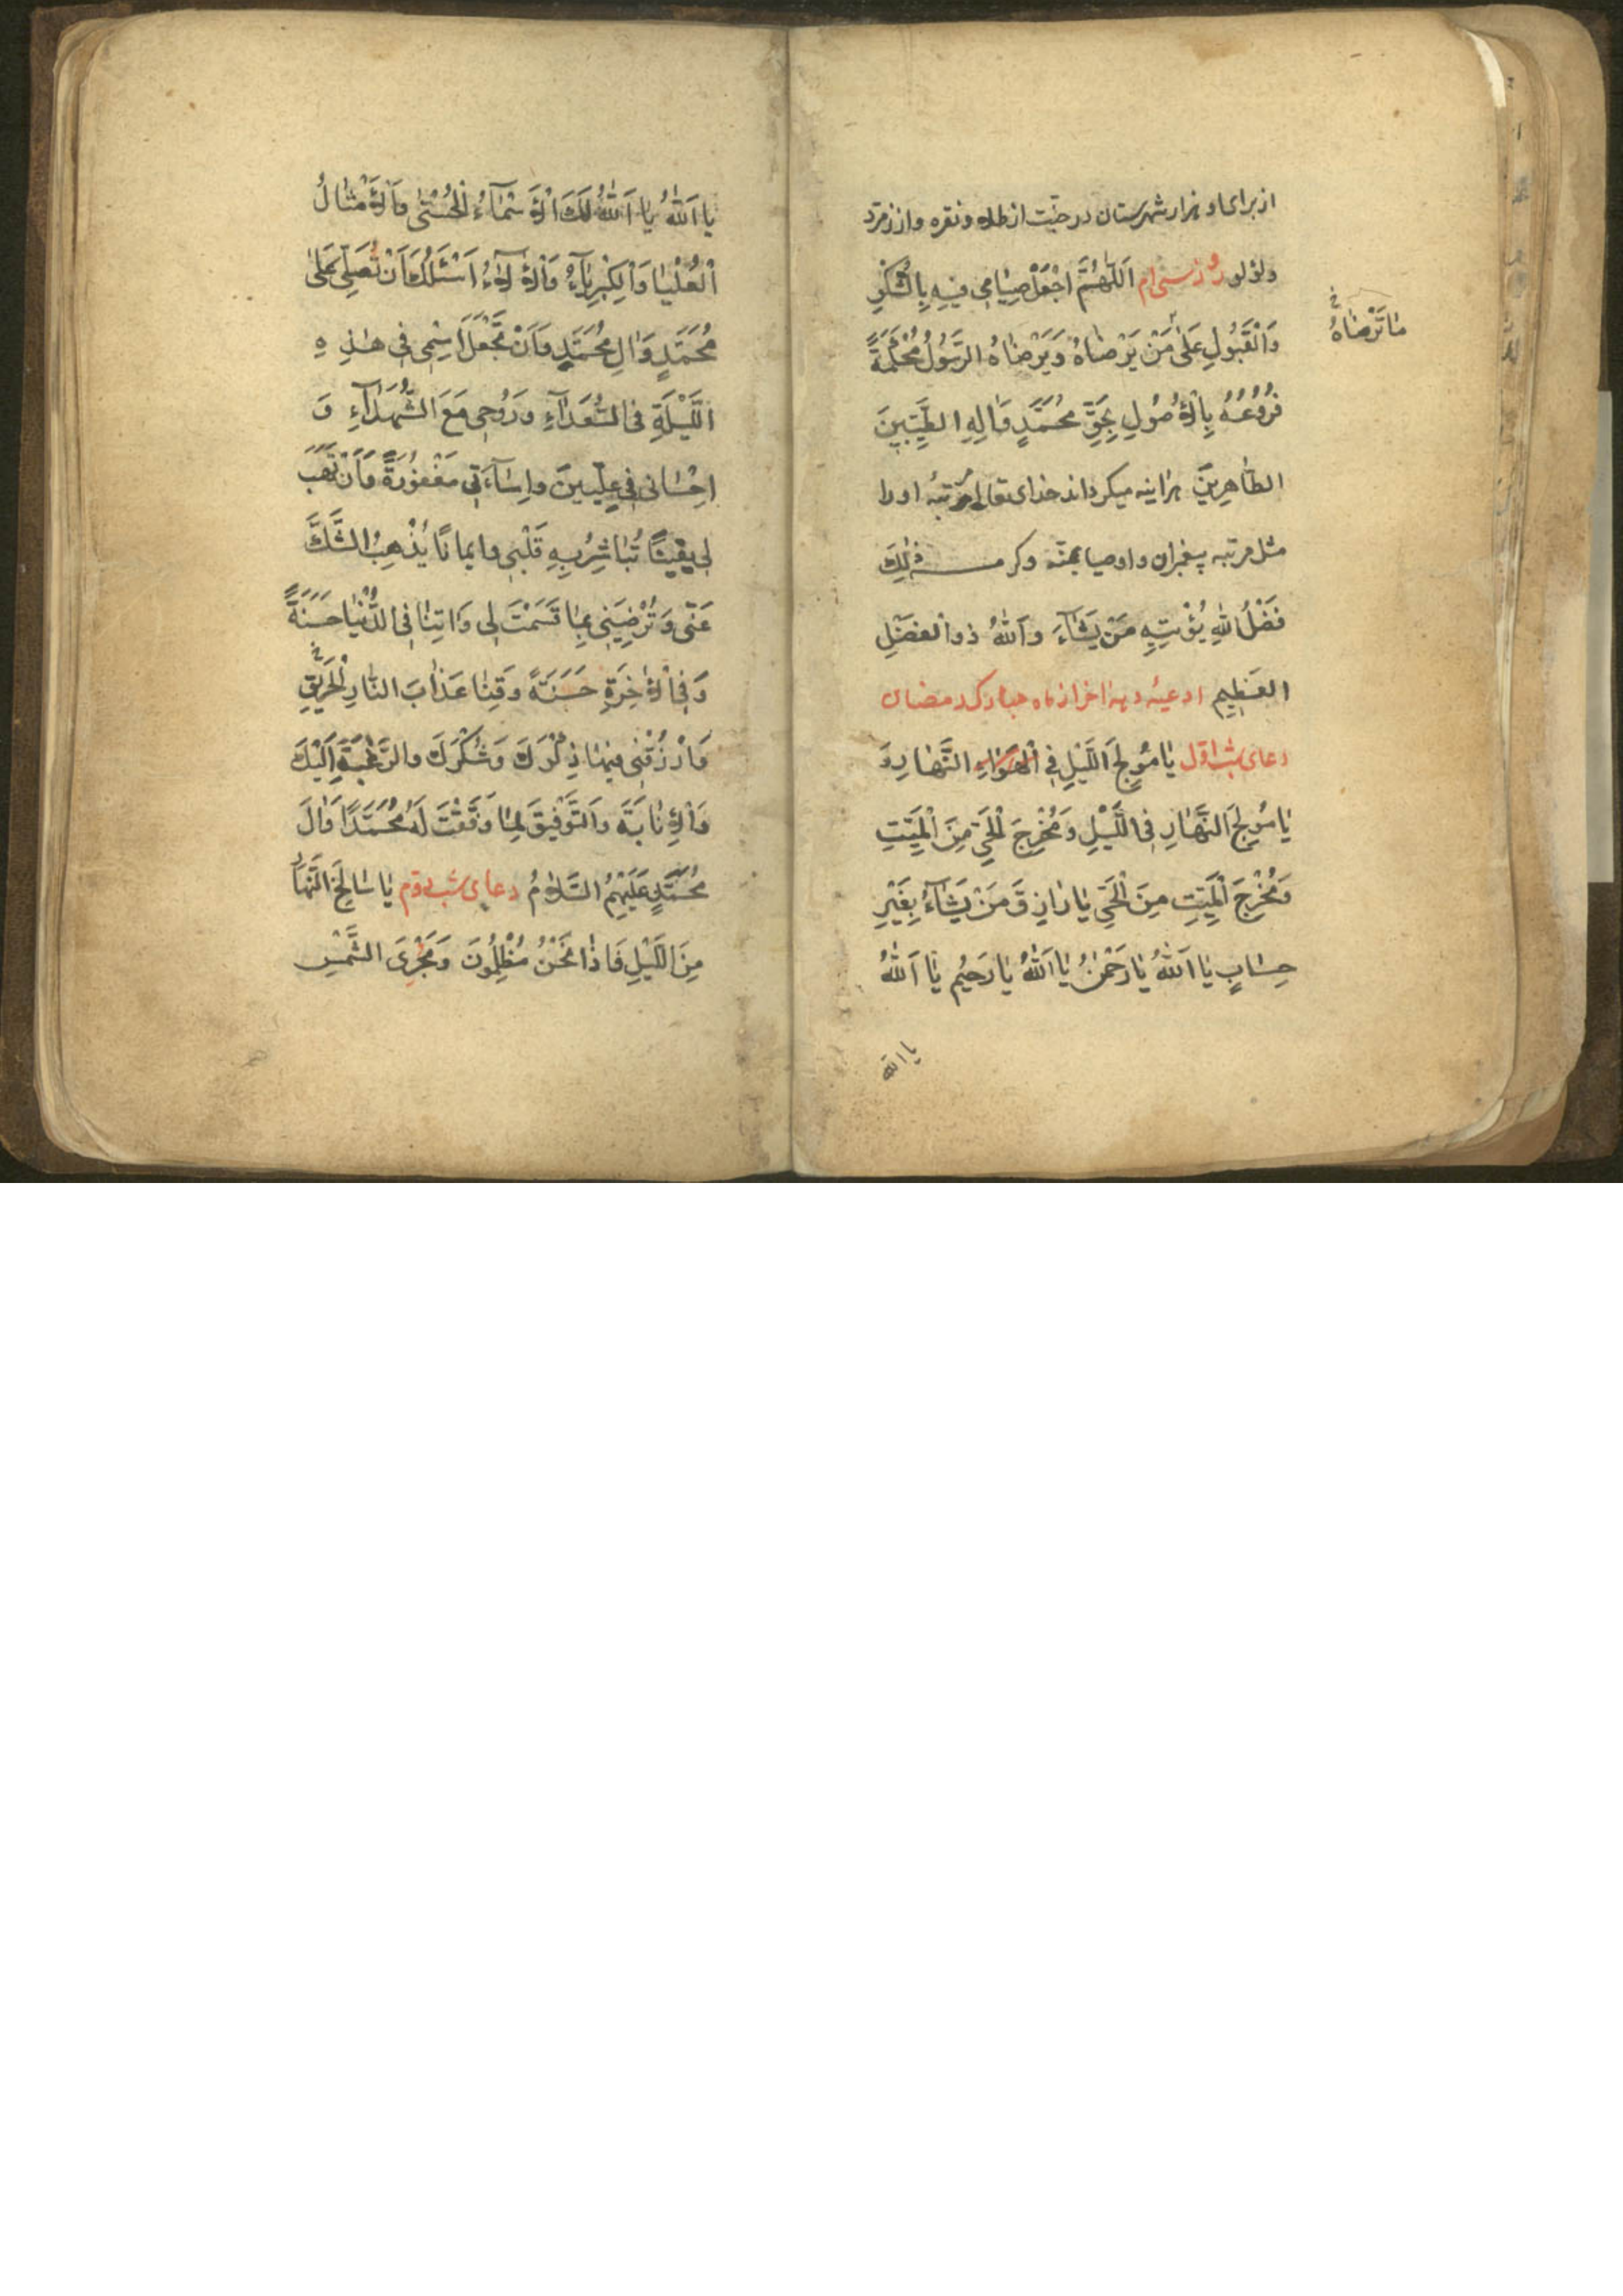 از برای او هزار شهرستان در جنّت از طلا و نقره و از زمرّد
و لؤلؤ روز سی‌ام اَللّٰهُمَّ اجْعَلْ صِیٰامِی فِیهِ بِالشُّکْرِ
وَالْقَبُولِ عَلیٰ مَنْ یَرْضٰاهُ وَیَرْضٰاهُ الرَّسُولُ مُحْکَمَةً
مٰا تَرْضٰاهُ خ
فُرُوعُهُ بِالْاُصُولِ بِحَقِّ مُحَمَّدٍ وَاٰلِهِ الطَّیِّبِینَ
الطّٰاهِرِینَ هراینه میکرداند خدای تعالی مرتبهٔ او را
مثل مرتبه پیغمبران و اوصیا بمنّه و کرمه ذٰلِكَ
فَضْلُ اللّٰهِ یُؤْتِیهِ مَنْ یَشٰآءُ وَاَللّٰهُ ذُوا الْفَضْلِ
الْعَظِیمِ ادعیهٔ دهه اخر از ماه مبارک رمضان
دعای شب اوّل یٰا مُولِجَ اللَّیْلِ فِی النَّهٰارِ وَ
یٰا مُولِجَ النَّهٰارِ فِی اللَّیْلِ وَمُخْرِجَ الْحَیِّ مِنَ الْمَیِّتِ
وَمُخْرِجَ الْمَیِّتِ مِنَ الْحَیِّ یٰا رٰازِقَ مَنْ یَشٰآءُ بِغَیْرِ
حِسٰابٍ یٰا اَللّٰهُ یٰا رَحْمٰنُ یٰا اَللّٰهُ یٰا رَحِیمُ یٰا اَللّٰهُ
یا اللّه
یٰا اَللّٰهُ یٰا اَللّٰهُ لَكَ الْاَسْمٰآءُ الْحُسْنیٰ وَالْاَمْثٰالُ
الْعُلْیٰا وَالْکِبْرِیٰآءُ وَالْاٰلٰآءُ اَسْئَلُكَ اَنْ تُصَلِّیَ عَلیٰ
مُحَمَّدٍ وَاٰلِ مُحَمَّدٍ وَاَنْ تَجْعَلَ اسْمِی فِی هٰذِهِ
اللَّیْلَةِ فِی السُّعَدٰآءِ وَرُوحِی مَعَ الشُّهَدٰآءِ وَ
اِحْسٰانِی فِی عِلِّیِّینَ وَاِسٰآءَتِی مَغْفُورَةً وَاَنْ تَهَبَ
لِی یَقِینًا تُبٰاشِرُ بِهِ قَلْبِی وَایمٰانًا یُذْهِبُ الشَّكَّ
عَنّی وَتُرْضِیَنِی بِمٰا قَسَمْتَ لِی وَاٰتِنٰا فِی الدُّنْیٰا حَسَنَةً
وَفِی الْاٰخِرَةِ حَسَنَةً وَقِنٰا عَذٰابَ النّٰارِ الْحَرِیقِ خ
وَارْزُقْنِی فِیهٰا ذِکْرَكَ وَشُکْرَكَ وَالرَّغْبَةَ اِلَیْكَ
وَالْاِنٰابَةَ وَالتَّوْفِیقَ لِمٰا وَفَّقْتَ لَهُ مُحَمَّدًا وَاٰلَ
مُحَمَّدٍ عَلَیْهِمُ السَّلٰامُ دعای شب دوّم یٰا سٰالِخَ النَّهٰارِ
مِنَ اللَّیْلِ فَاِذٰا نَحْنُ مُظْلِمُونَ وَمُجْرِیَ الشَّمْسِ